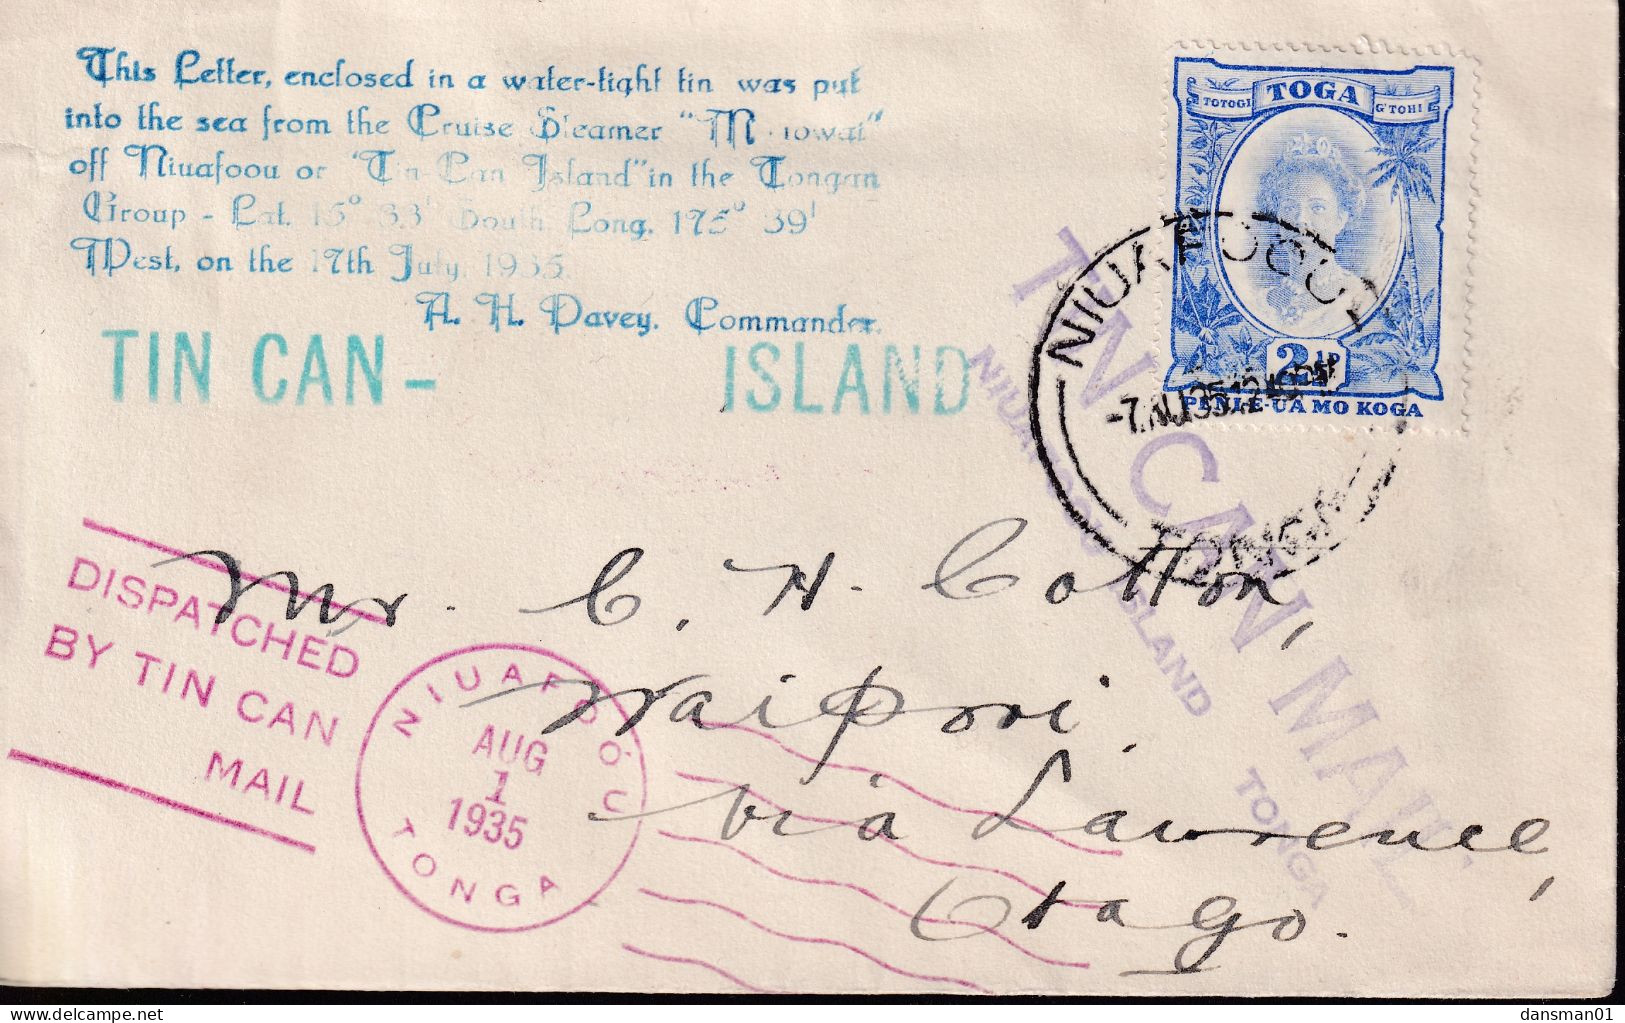 This Letter, enclosed in a water-tight tin was put
into the sea from the Cruise Steamer "M iowai"
off Niuafoou or "Tin Can Island" in the Tongan
Group - Lat. 15° 33' South, Long. 175° 39'
West, on the 17th July, 1935.
A. H. Davey, Commander.
TIN CAN - ISLAND
TOTOGI TOGA G'TOHI
2½P
PENI-E-UA MO KOGA
NIUAFOOU
TONGA
TIN CAN MAIL
NIUAFOOU ISLAND TONGA
DISPATCHED
BY TIN CAN
MAIL
NIUAFO'OU
AUG
1
1935
TONGA
Mr. C. H. Cotton,
Waipori.
via Lawrence,
Otago.
delcampe.net
dansman01